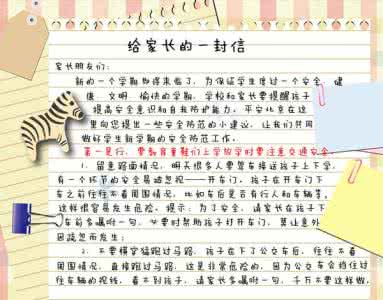 给家长的一封信
家长朋友们:
新的一个学期即将来临了,为保证学生度过一个安全、健
康、文明、愉快的学期,学校和家长要提醒孩子
提高安全意识和自我防护能力。平安北京在这
里向您提出一些安全防范的小建议,让我们共同
做好学生新学期的安全防范工作。
第一是行,要教育童鞋们上学放学时要注意交通安全
1、留意路面情况,明天很多人要驾车接送孩子上下学,
有一个环节的安全易被忽视——开车门。孩子在开车门下
车之前往往不看周围情况,比如车后是否有行人和车辆等,
这样很容易发生危险。提示:为了安全,请家长在孩子下
车前多嘱咐一句,必要时帮助孩子打开车门,莫让意外
因疏忽而发生;
2、不要横穿猛跑过马路,孩子在下了公交车后,往往不看
周围情况,直接跑过马路,这是非常危险的,因为公交车会挡住过
往车辆的视线,看不到孩子,请家长多嘱咐一句,千万不要这样做,